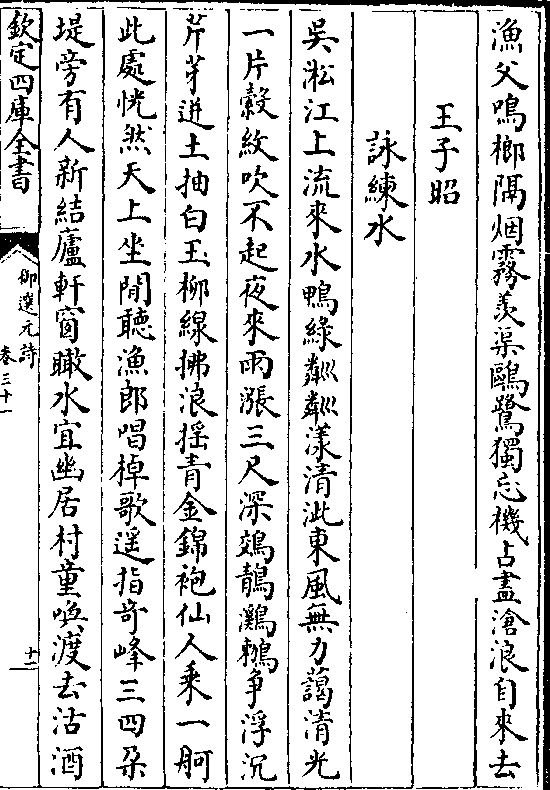 漁父鳴榔隔烟霧羨渠鷗鷺獨忘機占盡滄浪自來去
王子昭
詠練水
吳淞江上流來水鴨綠粼粼漾清泚東風無力蕩清光
一片縠紋吹不起夜來雨漲三尺深鵁鶄鸂鶒争浮沉
芹芽迸土抽白玉柳線拂浪揺青金錦袍仙人乘一舸
此處恍然天上坐閒聽漁郎唱棹歌遥指奇峰三四朶
堤旁有人新結廬軒窗瞰水宜幽居村童喚渡去沽酒
欽定四庫全書
御選元詩
卷三十一
十二